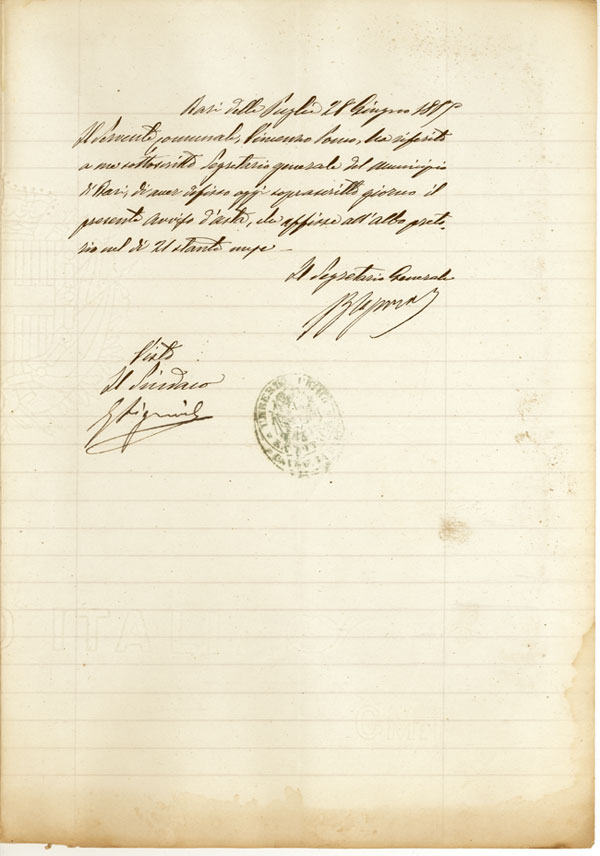 Bari delle Puglie 28 Giugno
Il Servente comunale, Vincenzo ha riferito
a me sottoscritto Segretario generale del Municipio
di Bari, di aver difisso oggi soprascritto giorno il
presente avviso d'asta, che affisse all'albo preto-
rio nel dì 21 stante mese
Il Segretario Generale
Visto
Il Sindaco
O ITALI